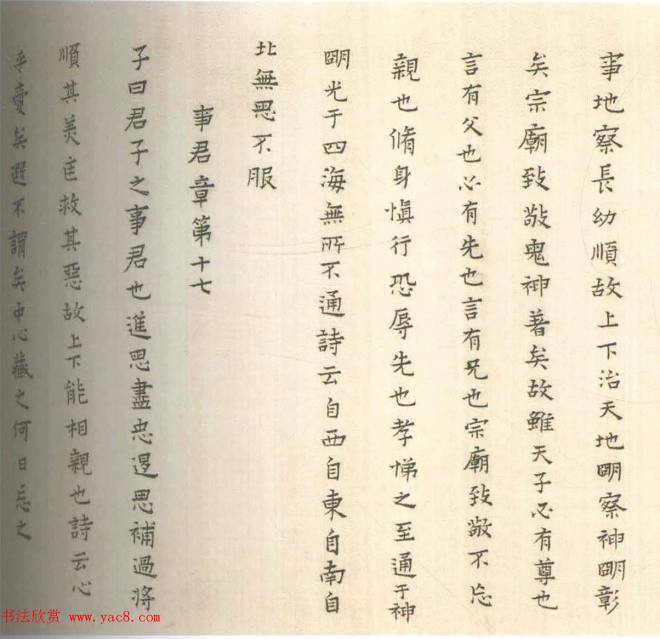 事地察長幼順故上下治天地眀察神眀彰
矣宗廟致敬鬼神著矣故雖天子必有尊也
言有父也必有先也言有兄也宗廟致敬不忘
親也脩身慎行恐辱先也孝悌之至通于神
眀光于四海無所不通詩云自西自東自南自
北無思不服
事君章第十七
子曰君子之事君也進思盡忠退思補過將
順其美匡救其惡故上下能相親也詩云心
乎愛矣遐不謂矣中心藏之何日忘之
书法欣赏 www.yac8.com